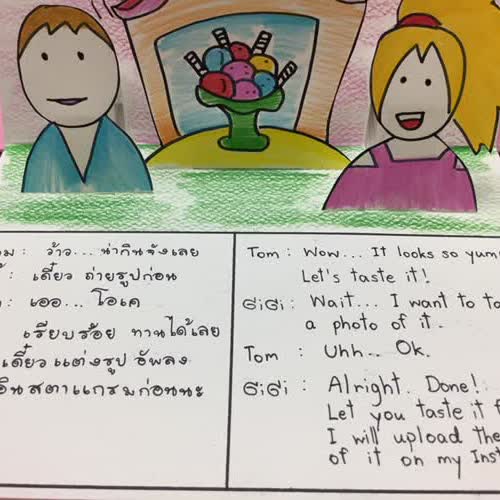 ว้าว... น่ากินจังเลย
เดี๋ยว ถ่ายรูปก่อน
เออ... โอเค
เรียบร้อย ทานได้เลย
เดี๋ยวแต่งรูป อัพลง
อินสตาแกรมก่อนนะ
Tom : Wow... It looks so
Let's taste it!
GiGi : Wait... I want to
a photo of it.
Tom : Uhh.. Ok.
GiGi : Alright. Done!
Let you taste it
I will upload the
of it on my